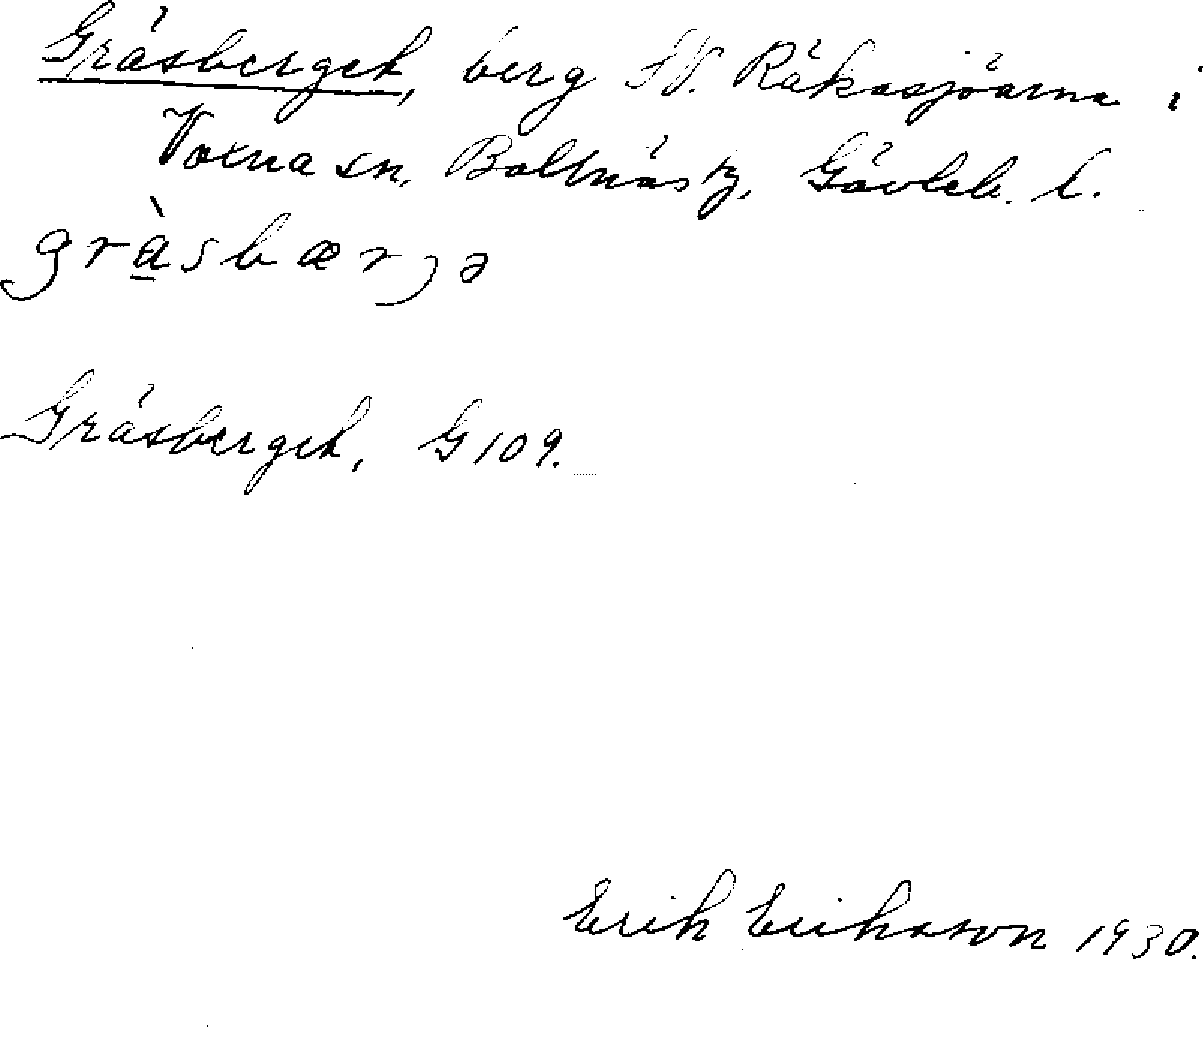 Gräsberget, berg SV. Räkasjöarna i
Voxna sn, Bollnäs tg, Gävleb. l.
gràsbærjə
Gräsberget, G 109.
Erik Eriksson 1930.